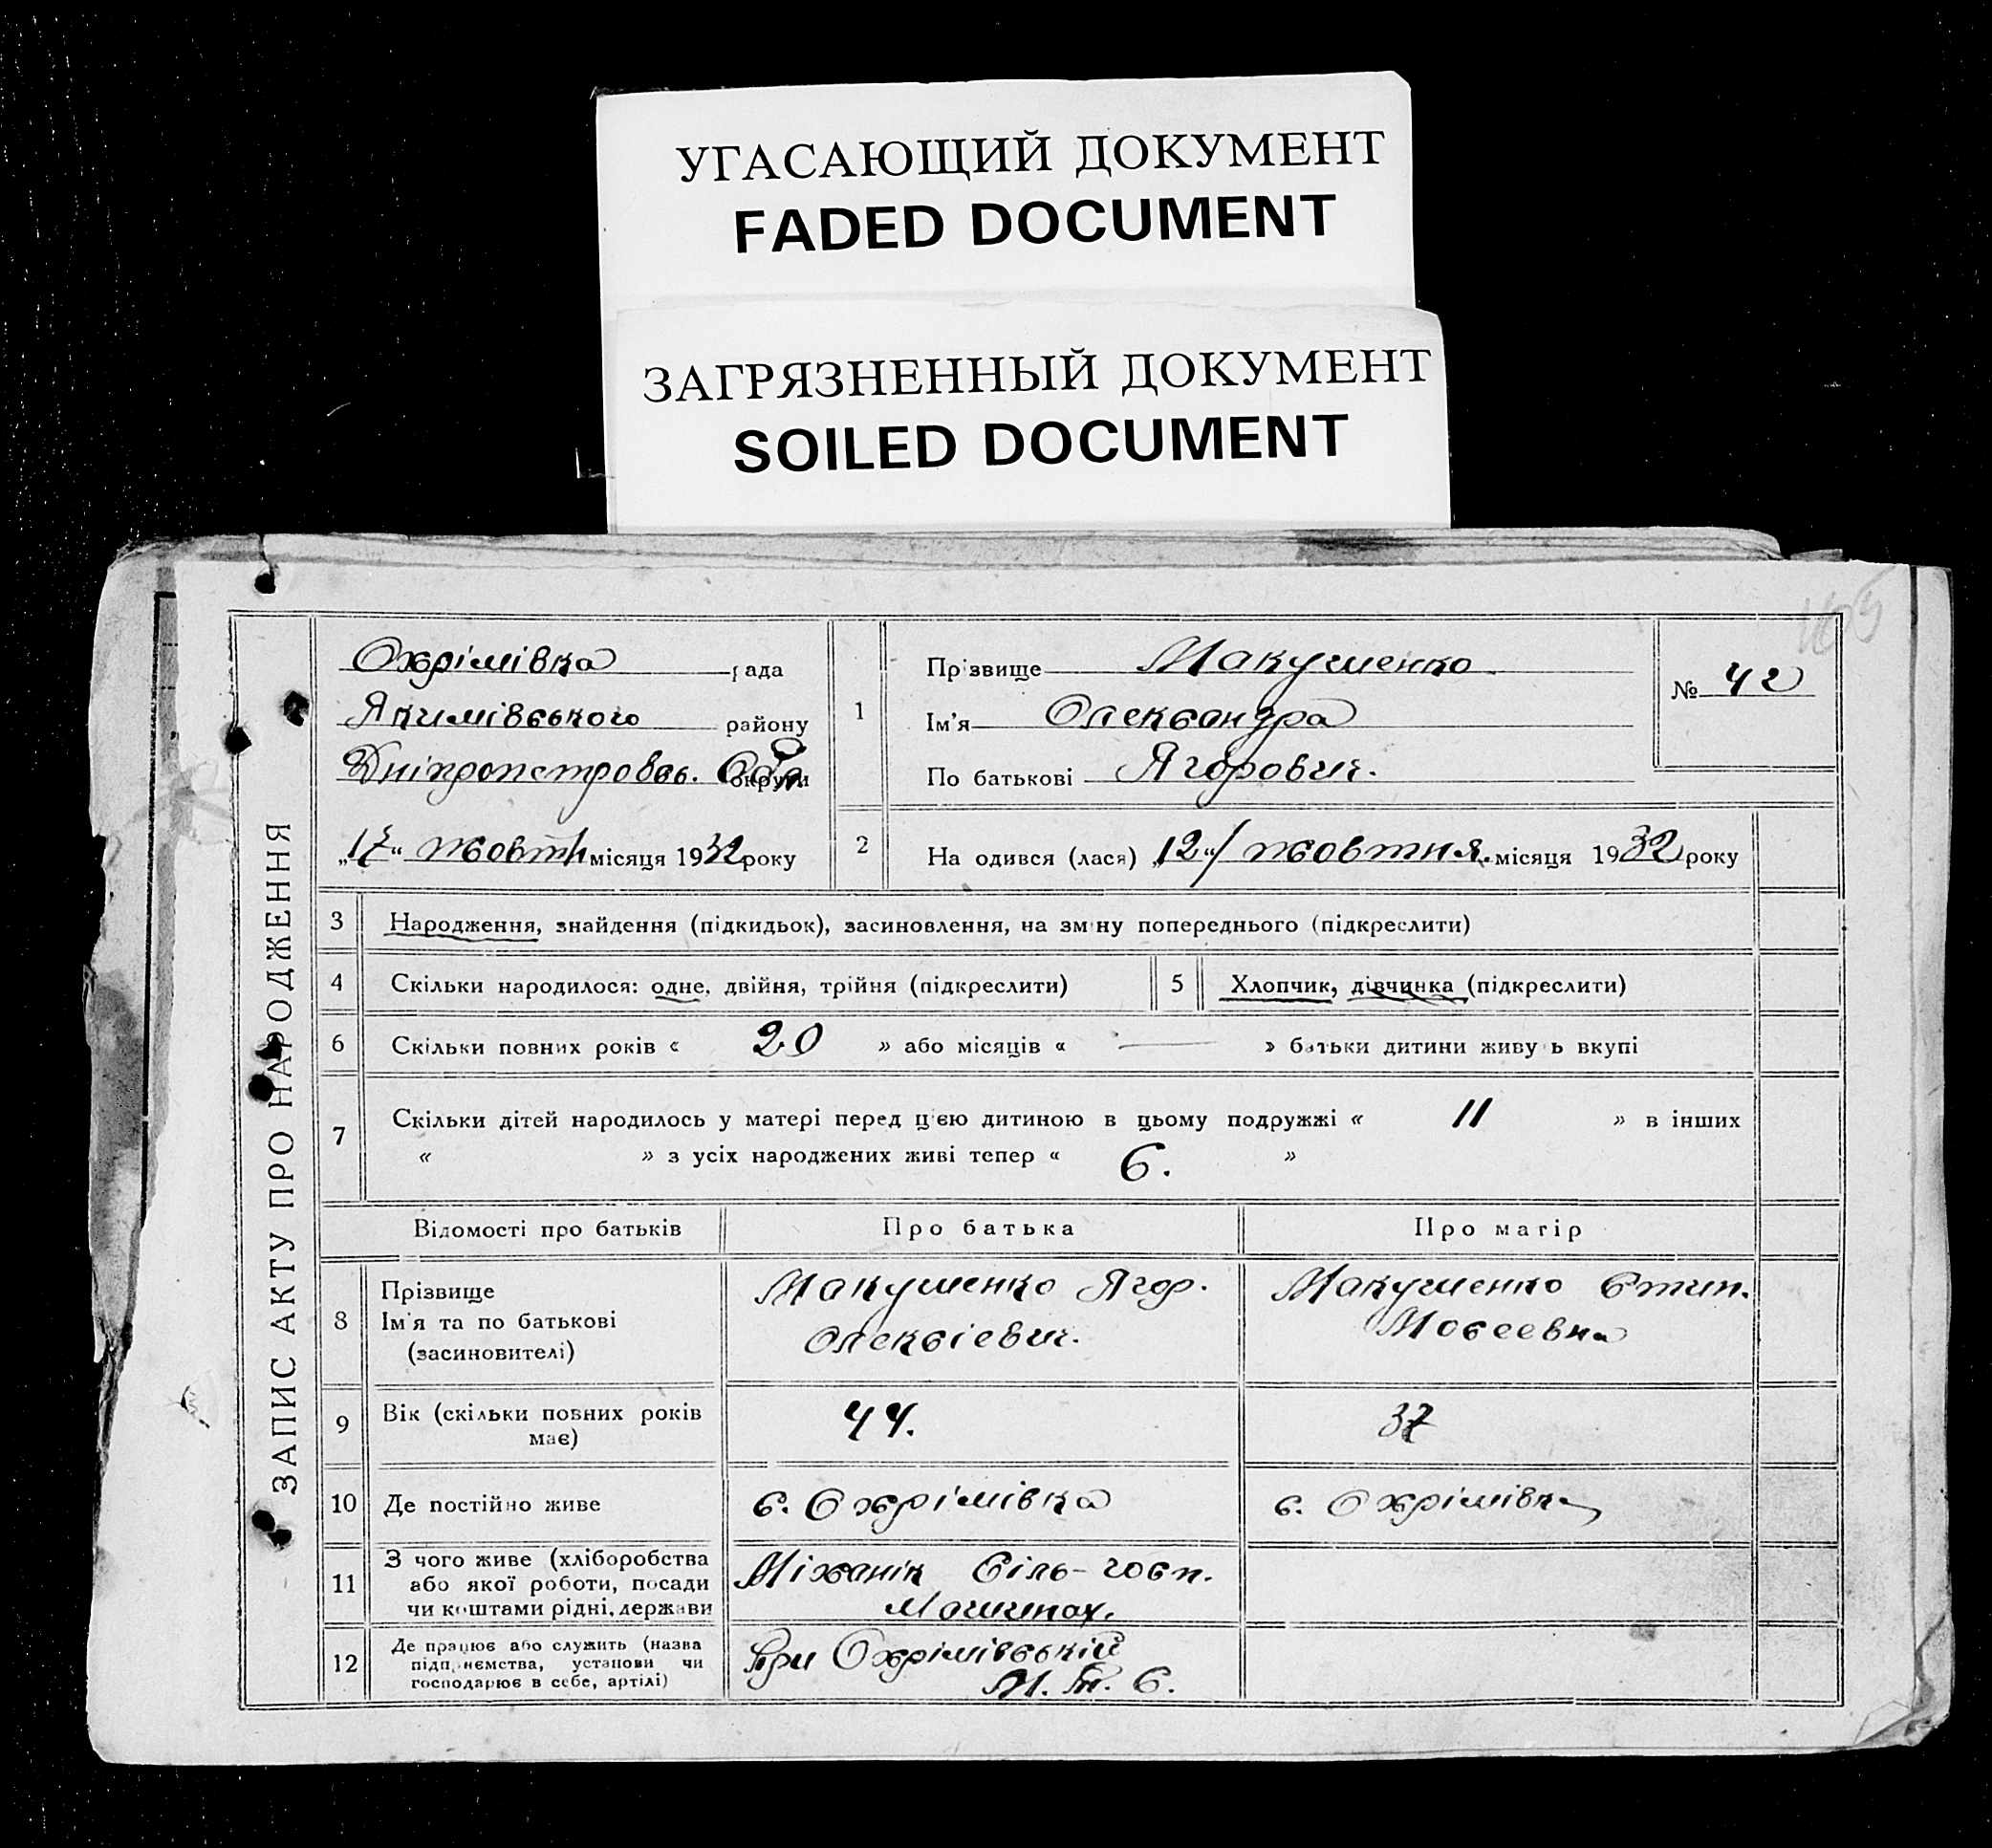 УГАСАЮЩИЙ ДОКУМЕНТ
FADED DOCUMENT
ЗАГРЯЗНЕННЫЙ ДОКУМЕНТ
SOILED DOCUMENT
ЗАПИС АКТУ ПРО НАРОДЖЕННЯ
Охрімівка рада
Якимівського району
Дніпропетровсь. округи
„17“ жовтн місяця 1932 року
1
Прізвище Макушенко
Ім'я Олександра
По батькові Ягорович.
№ 42
2
На одився (лася) „12“ жовтня. місяця 1932 року
3 Народження, знайдення (підкидьок), засиновлення, на зміну попереднього (підкреслити)
4 Скільки народилося: одне, двійня, трійня (підкреслити)
5 Хлопчик, дівчинка (підкреслити)
6 Скільки повних років « 20 » або місяців « — » батьки дитини живуть вкупі
7 Скільки дітей народилось у матері перед цією дитиною в цьому подружжі « 11 » в інших
« » з усіх народжених живі тепер « 6. »
Відомості про батьків Про батька Про матір
8 Прізвище
Ім'я та по батькові
(засиновителі)
Макушенко Ягор.
Олексіевич.
Макушенко Стип.
Мосеевна
9 Вік (скільки повних років
має)
44.
37
10 Де постійно живе с. Охрімівка с. Охрімівка
11 З чого живе (хліборобства
або якої роботи, посади
чи коштами рідні, держави
Міханік Сіль-госп.
Машинах.
12 Де працює або служить (назва
підприємства, установи чи
господарює в себе, артілі)
При Охрімівській
М. Т. С.